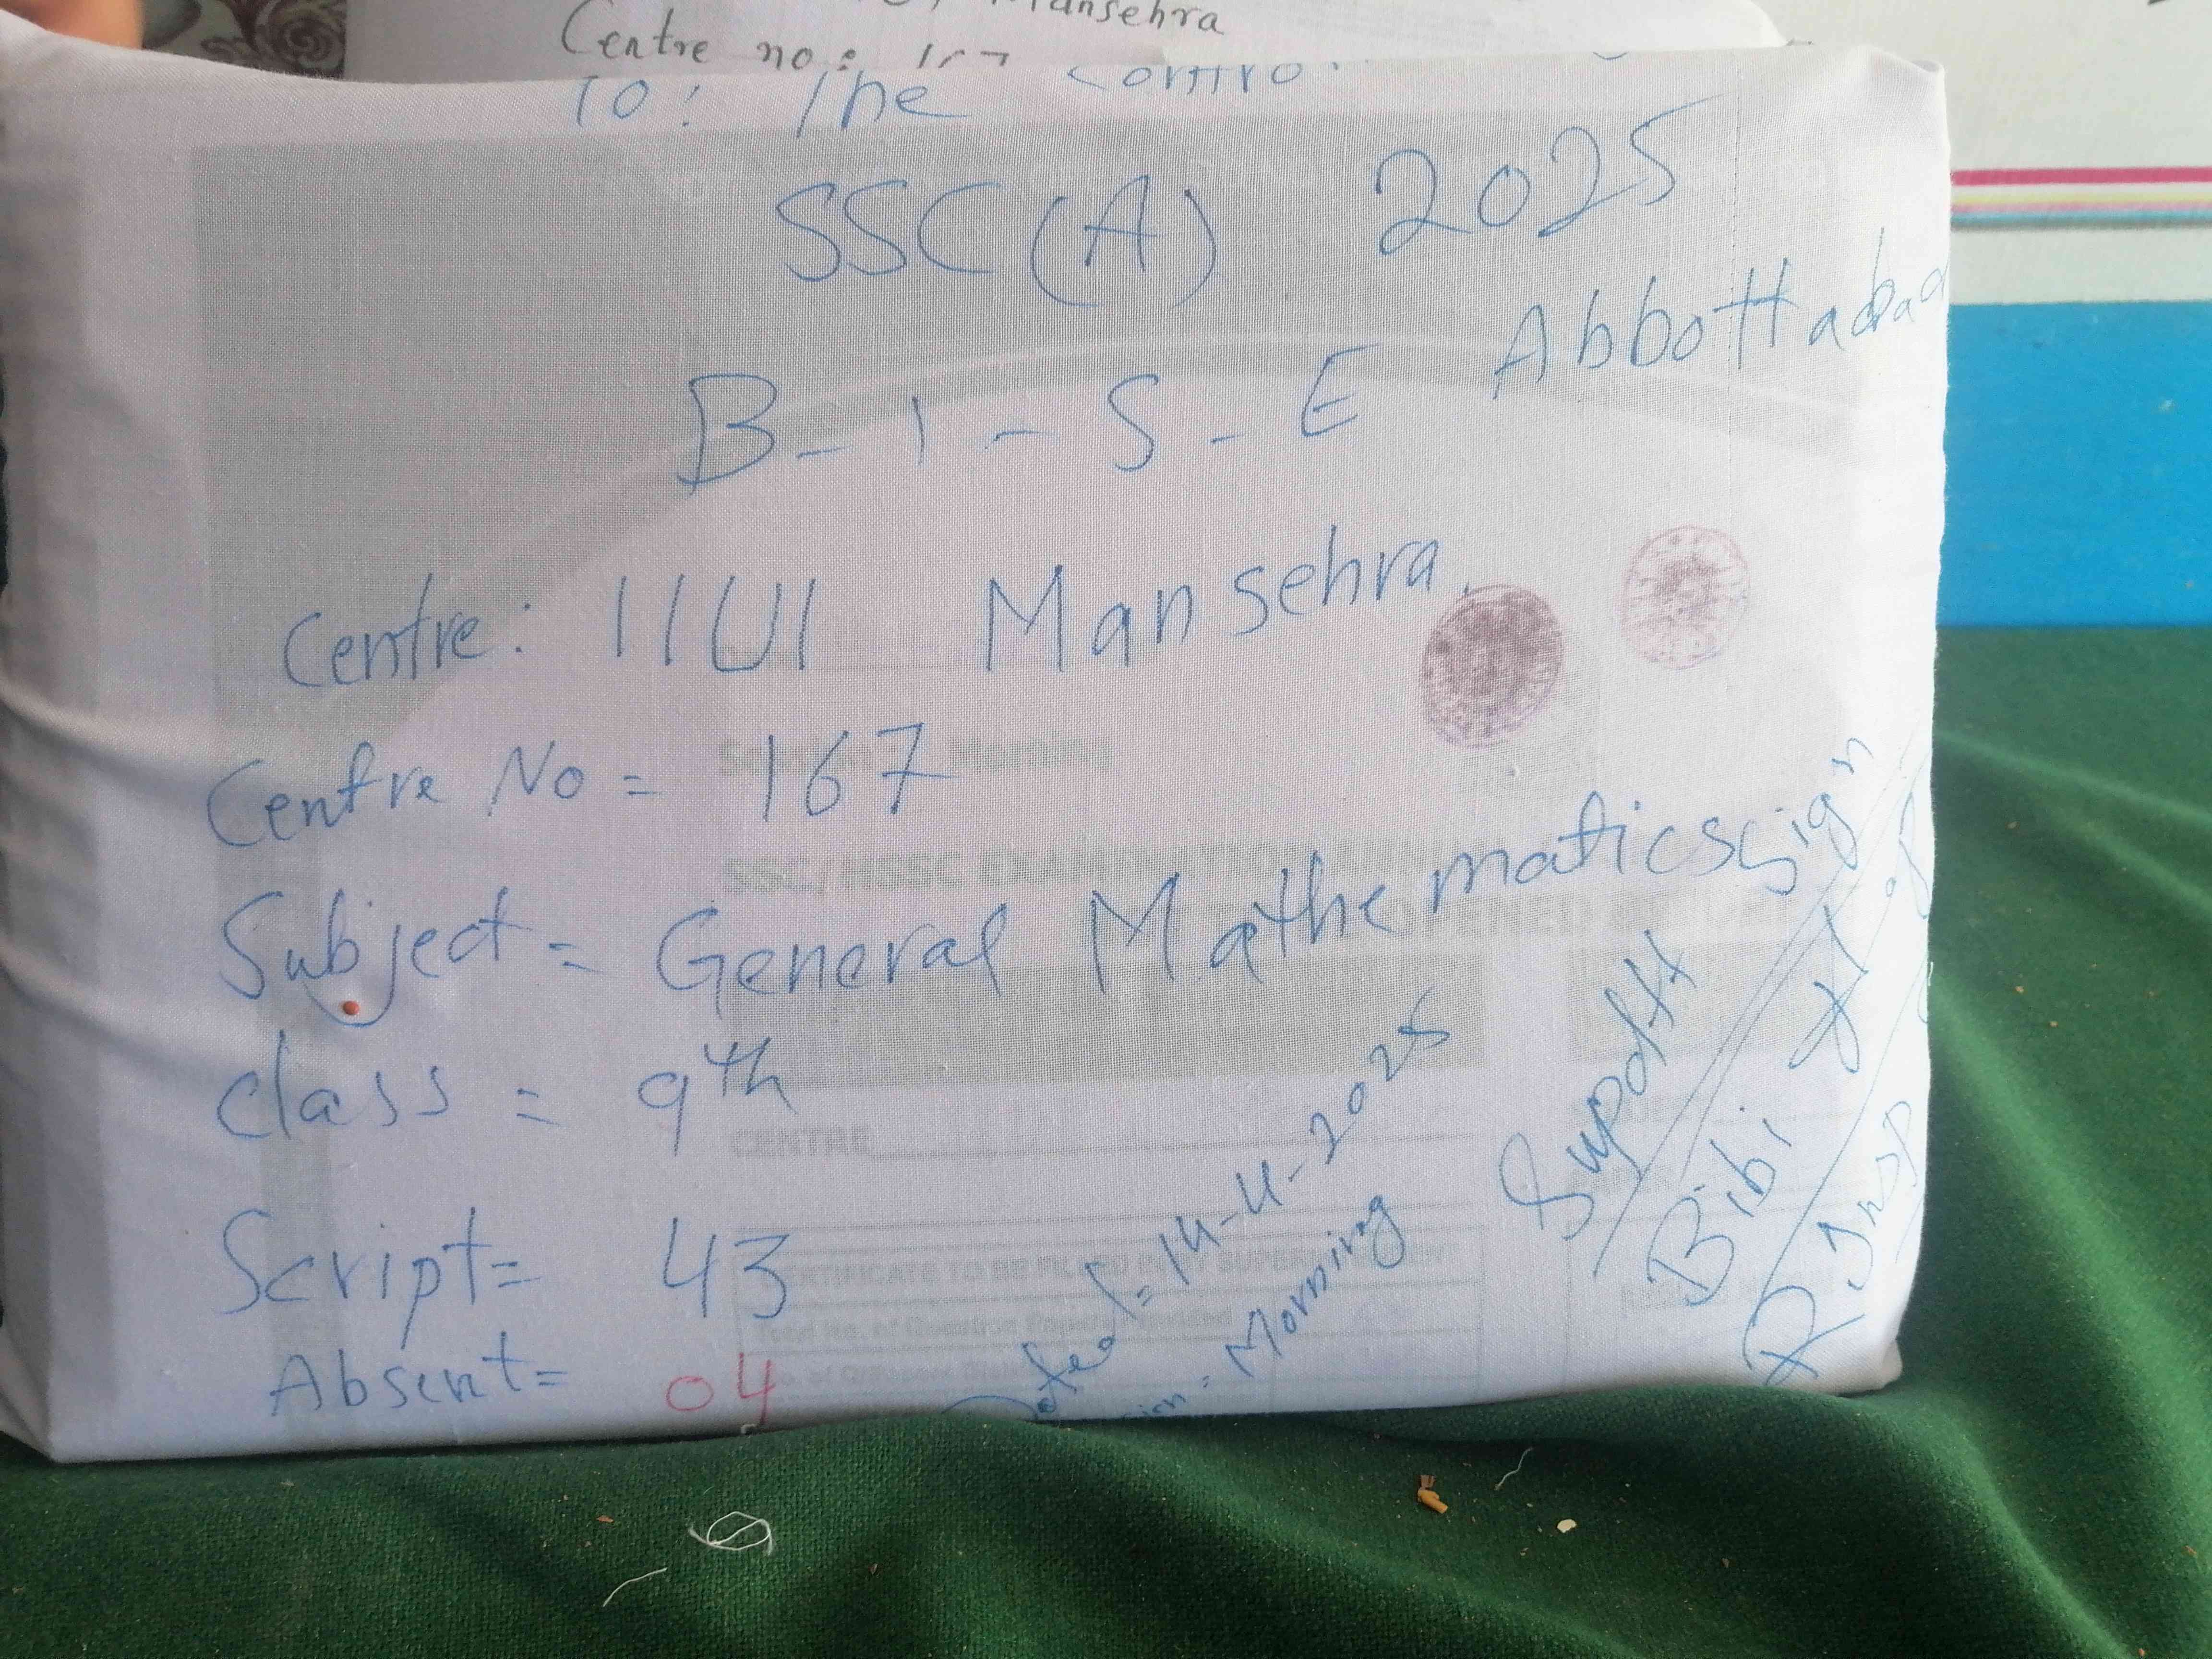 Mansehra
Centre no: 167
To: The Contro
SSC (A) 2025
B-I-S-E Abbottabad
Centre: IIUI Mansehra.
Centre No = 167
Subject = General Mathematics
Class = 9th
Script = 43
Absent = 04
Dated = 14-4-2025
Morning
Sign
Supdtt
Bibi
R. Insp
SSC/HSSC EXAMINATION
OPENED
CENTRE
CERTIFICATE TO BE FILLED IN BY SUPERINTENDENT
Total No. of Question Papers